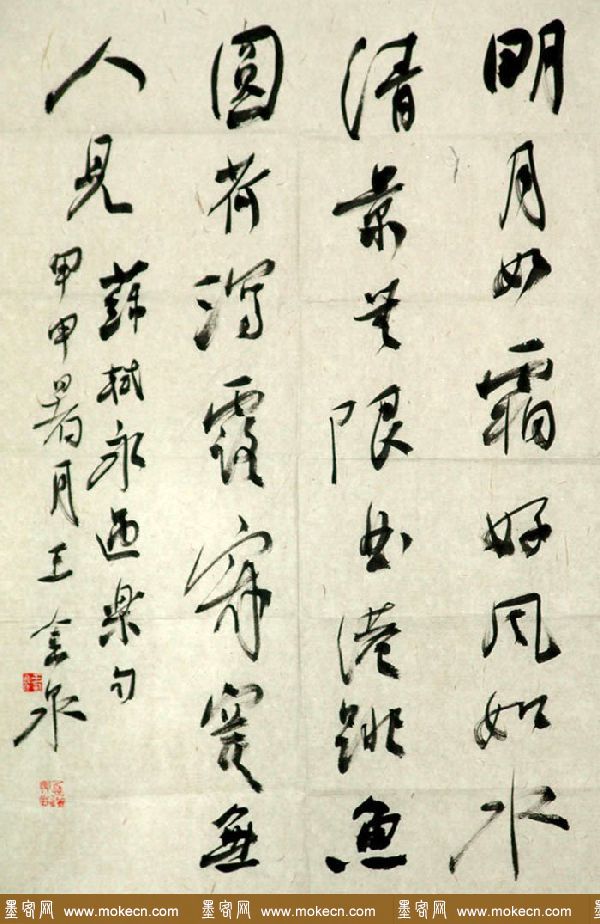 明月如霜好风如水
清景無限曲港跳魚
圆荷泻露寂寞無
人見
蘇轼永遇樂句
甲申暑月王金泉
墨客网 www.mokecn.com 墨客网 www.mokecn.com 墨客网 www.mokecn.com